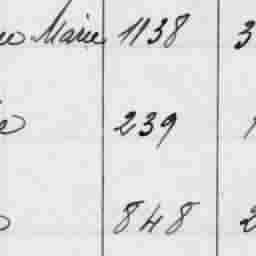 Marie 1138 3
239
848 2